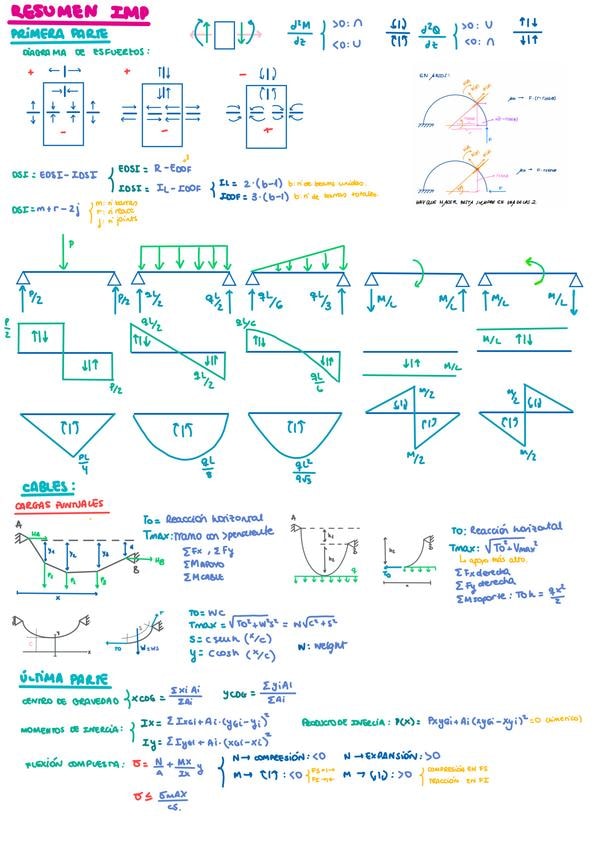 RESUMEN IMP
PRIMERA PARTE
DIAGRAMA DE ESFUERZOS:
d²M/dz { >0: ∩
<0: ∪
d²Q/dz { >0: ∪
<0: ∩
EN ARCOS:
DSI = EDSI - IDSI { EDSI = R - EDOF
IDSI = IL - IDOF { IL = 2·(b-1) b: nº de barras unidas.
IDOF = 3·(b-1) b: nº de barras totales
DSI = m + r - 2j { m: nº barras
r: nº react
j: nº joints
P
P/2 P/2 qL/2 qL/2 qL/6 qL/3 M/L M/L M/L M/L
P/2 P/2 qL/2 qL/2 qL/6 qL/6 M/L M/L
PL/4 qL/8 qL²/9√3 M/2 M/2 M/2 M/2
CABLES:
CARGAS PUNTUALES
To = Reacción horizontal
Tmax:
Σ Fx , Σ Fy
Σ M APOYO
Σ M CABLE
To: Reacción horizontal
Tmax: √To² + Vmax²
↳ apoyo más alto.
Σ Fx derecha
Σ Fy derecha
Σ M soporte: To h = qx²/2
To = wc
Tmax = √To² + w²s² = w√c² + s²
S = c senh (x/c)
y = c cosh (x/c)
W: weight
ÚLTIMA PARTE
CENTRO DE GRAVEDAD { XCDG = Σxi Ai/ΣAi YCDG = Σyi Ai/ΣAi
MOMENTOS DE INERCIA: { Ix = Σ IxGi + Ai·(yGi - yi)²
Iy = Σ IyGi + Ai·(xGi - xi)²
PRODUCTO DE INERCIA: P(x) = PxyGi + Ai(xyGi - xyi)² = 0 (simétrico)
FLEXIÓN COMPUESTA: σ = N/A + Mx/Ix y { N → COMPRESIÓN: <0 N → EXPANSIÓN: >0
M → <0 M → >0 { COMPRESIÓN EN FS
TRACCIÓN EN FI
σ ≤ σMAX/CS.